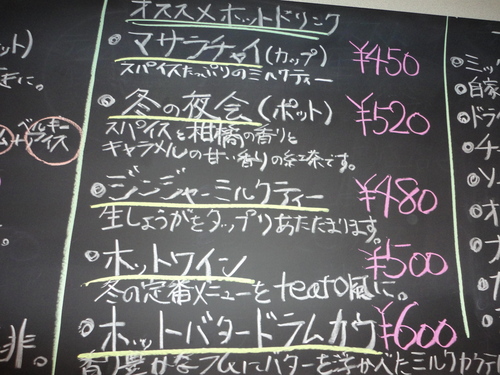 オススメホットドリンク
マサラチャイ(カップ) ¥450
スパイスたっぷりのミルクティー
冬の夜会(ポット) ¥520
スパイスと柑橘の香りと
キャラメルの甘い香りの紅茶です。
ジンジャーミルクティー ¥480
生しょうがとダップリあたたまります。
ホットワイン ¥500
冬の定番メニューをteato風に。
ホットバタードラムカウ ¥600
香り豊かなラムにバターを浮かべたミルクカクテ
ット)
ぎに。
ベルギー
アイス
非。
ミッ
自家
ドラ
チー
ソー